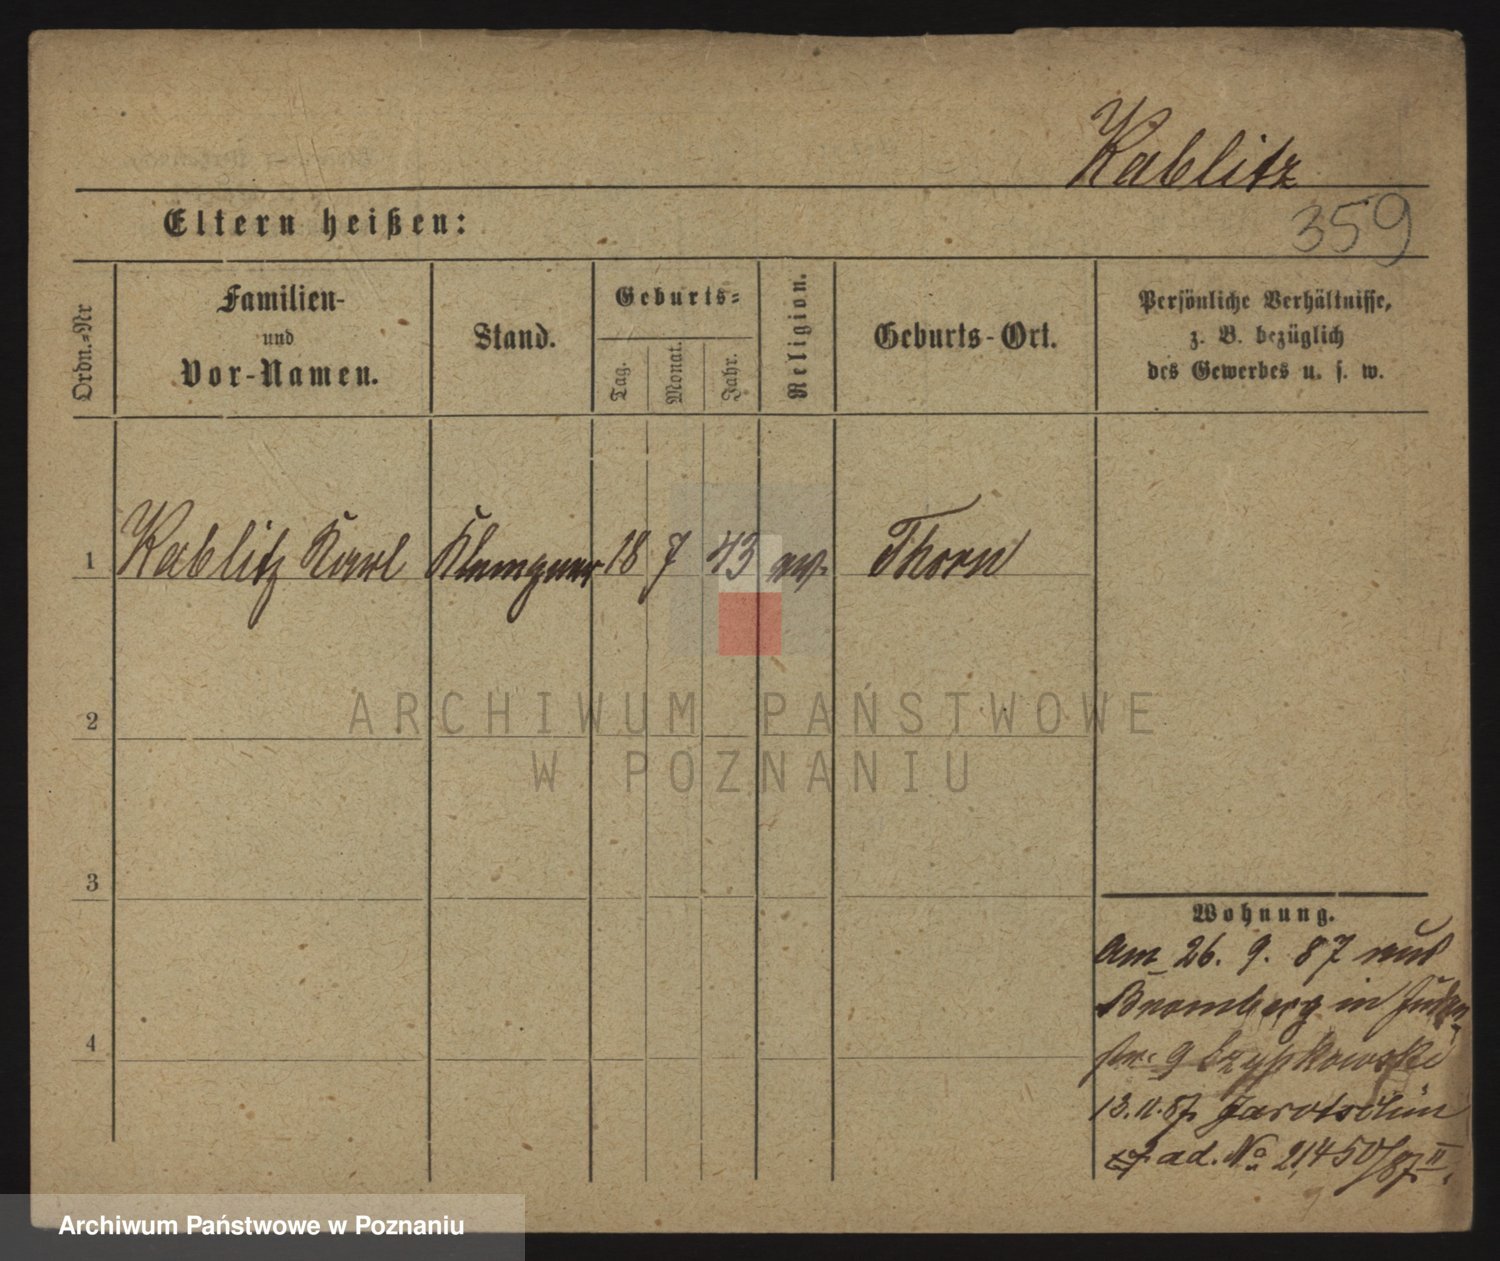 Kablitz
359
Eltern heißen:
Ordn.-Nr
Familien-
und
Vor-Namen.
Stand.
Geburts-
Tag.
Monat.
Jahr.
Religion.
Geburts-Ort.
Persönliche Verhältnisse,
z. B. bezüglich
des Gewerbes u. s. w.
1 Kablitz Karl Klempner 18 7 43 ev. Thorn
2
3
4
ARCHIWUM PAŃSTWOWE
W POZNANIU
Wohnung.
Am 26. 9. 87 aus
Bromberg in Juden-
str. 9 Czypkowski
13.11.87 Jarotschin
ad. No 21450/87 II.
Archiwum Państwowe w Poznaniu